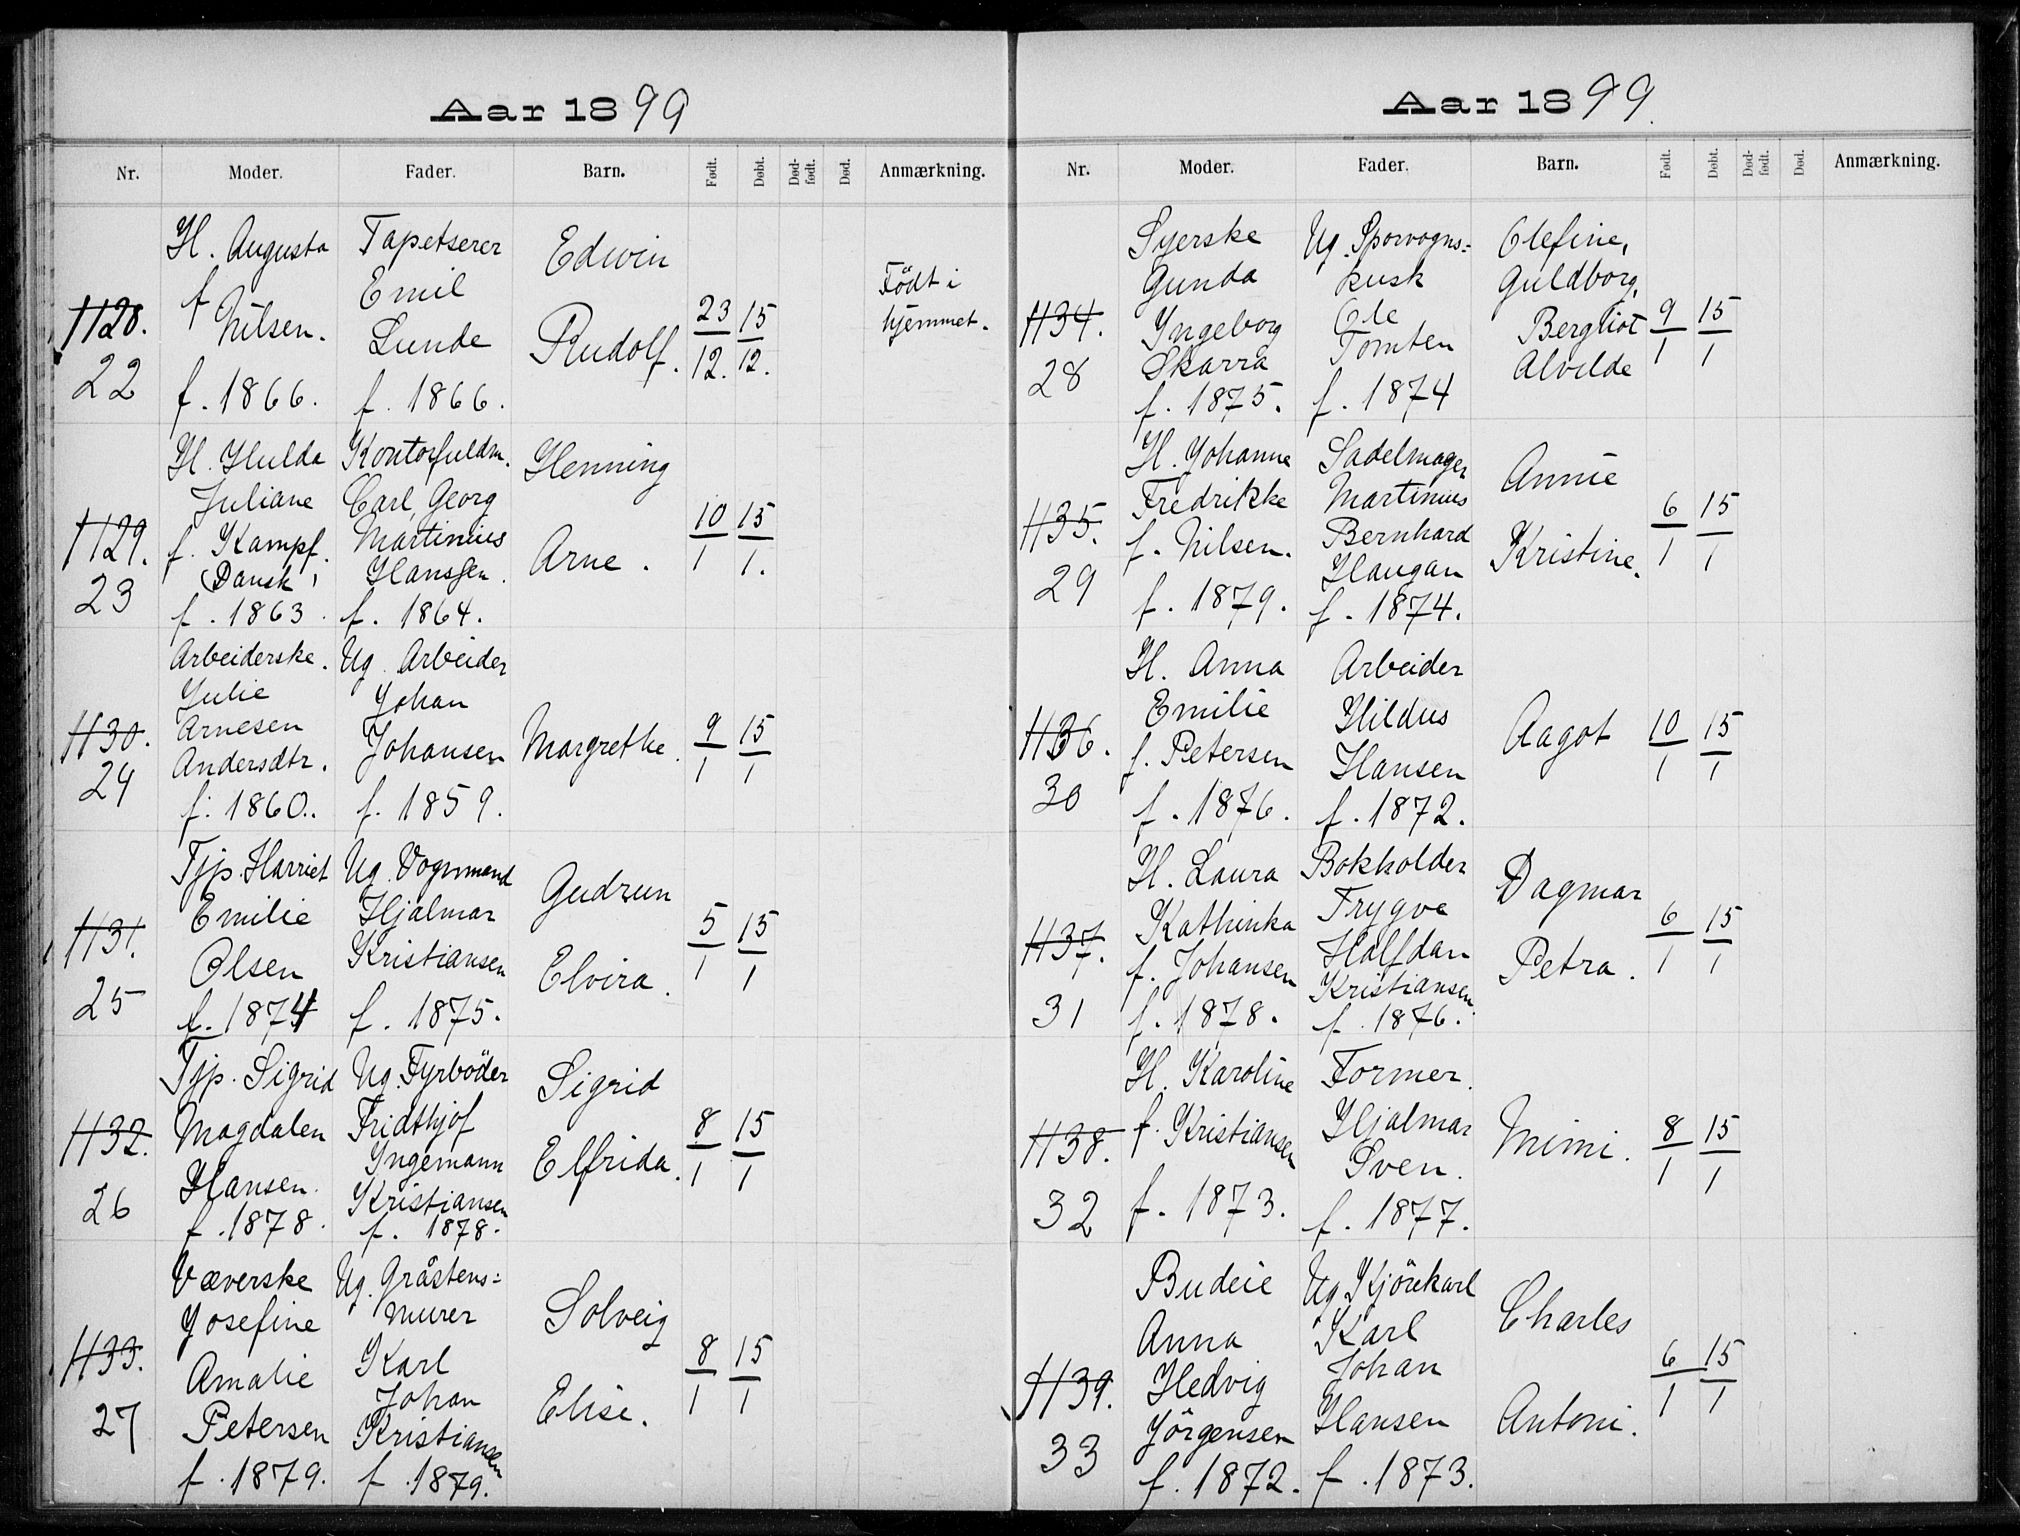 Aar 1899
Nr. Moder. Fader. Barn. Født. Døbt. Død-født. Død. Anmærkning.
1128.
22
H. Augusta
f
Nilsen.
f. 1866.
Tapetserer
Emil
Lunde
f. 1866.
Edwin
Rudolf.
23/12. 15/12.
Födt i
hjemmet.
1129.
23
H. Hulda
Juliane
f. Kampf.
Dansk,
f. 1863.
Kontorfuldm.
Carl, Georg
Martinius
Hanssen.
f. 1864.
Henning
Arne.
10/1 15/1.
1130.
24
Arbeiderske.
Julie
Arnesen
Andersdtr.
f. 1860.
Ug. Arbeider
Johan
Johansen
f. 1859.
Margrethe.
9/1 15/1
1131.
25
Tjp. Harriet
Emilie
Olsen
f. 1874
Ug. Vognmand
Hjalmar
Kristiansen
f. 1875.
Gudrun
Elvira.
5/1 15/1
1132.
26
Tjp. Sigrid
Magdalen
Hansen.
f. 1878.
Ug. Fyrböder
Fridthjof
Yngemann
Kristiansen
f. 1878.
Sigrid
Elfrida.
8/1 15/1
1133.
27
Væverske
Josefine
Amalie
Petersen
f. 1879.
Ug. Gråstens-
murer
Karl
Johan
Kristiansen
f. 1879.
Solveig
Elise.
8/1 15/1
Aar 1899.
Nr. Moder. Fader. Barn. Født. Døbt. Død-født. Død. Anmærkning.
1134.
28
Syerske
Gunda
Yngeborg
Skarra
f. 1875.
Ug. Sporvogns-
kusk
Ole
Tomten
f. 1874
Olefine,
Guldborg,
Bergliot
Alvilde
9/1 15/1
1135.
29
H. Johanne
Fredrikke
f. Nilsen.
f. 1879.
Sadelmager
Martinius
Bernhard
Haugan
f. 1874.
Annie
Kristine.
6/1 15/1
1136.
30
H. Anna
Emilie
f. Petersen
f. 1876.
Arbeider
Hildus
Hansen
f. 1872.
Aagot
10/1 15/1
1137.
31
H. Laura
Kathinka
f. Johansen
f. 1878.
Bokholder
Trygve
Halfdan
Kristiansen
f. 1876.
Dagmar
Petra.
6/1 15/1
1138.
32
H. Karoline
f. Kristiansen
f. 1873.
Former.
Hjalmar
Sven.
f. 1877.
Mimi.
8/1 15/1
1139.
33
Budeie
Anna
Hedvig
Jörgensen
f. 1872.
Ug. Kjörekarl
Karl
Johan
Hansen
f. 1873.
Charles
Antoni.
6/1 15/1